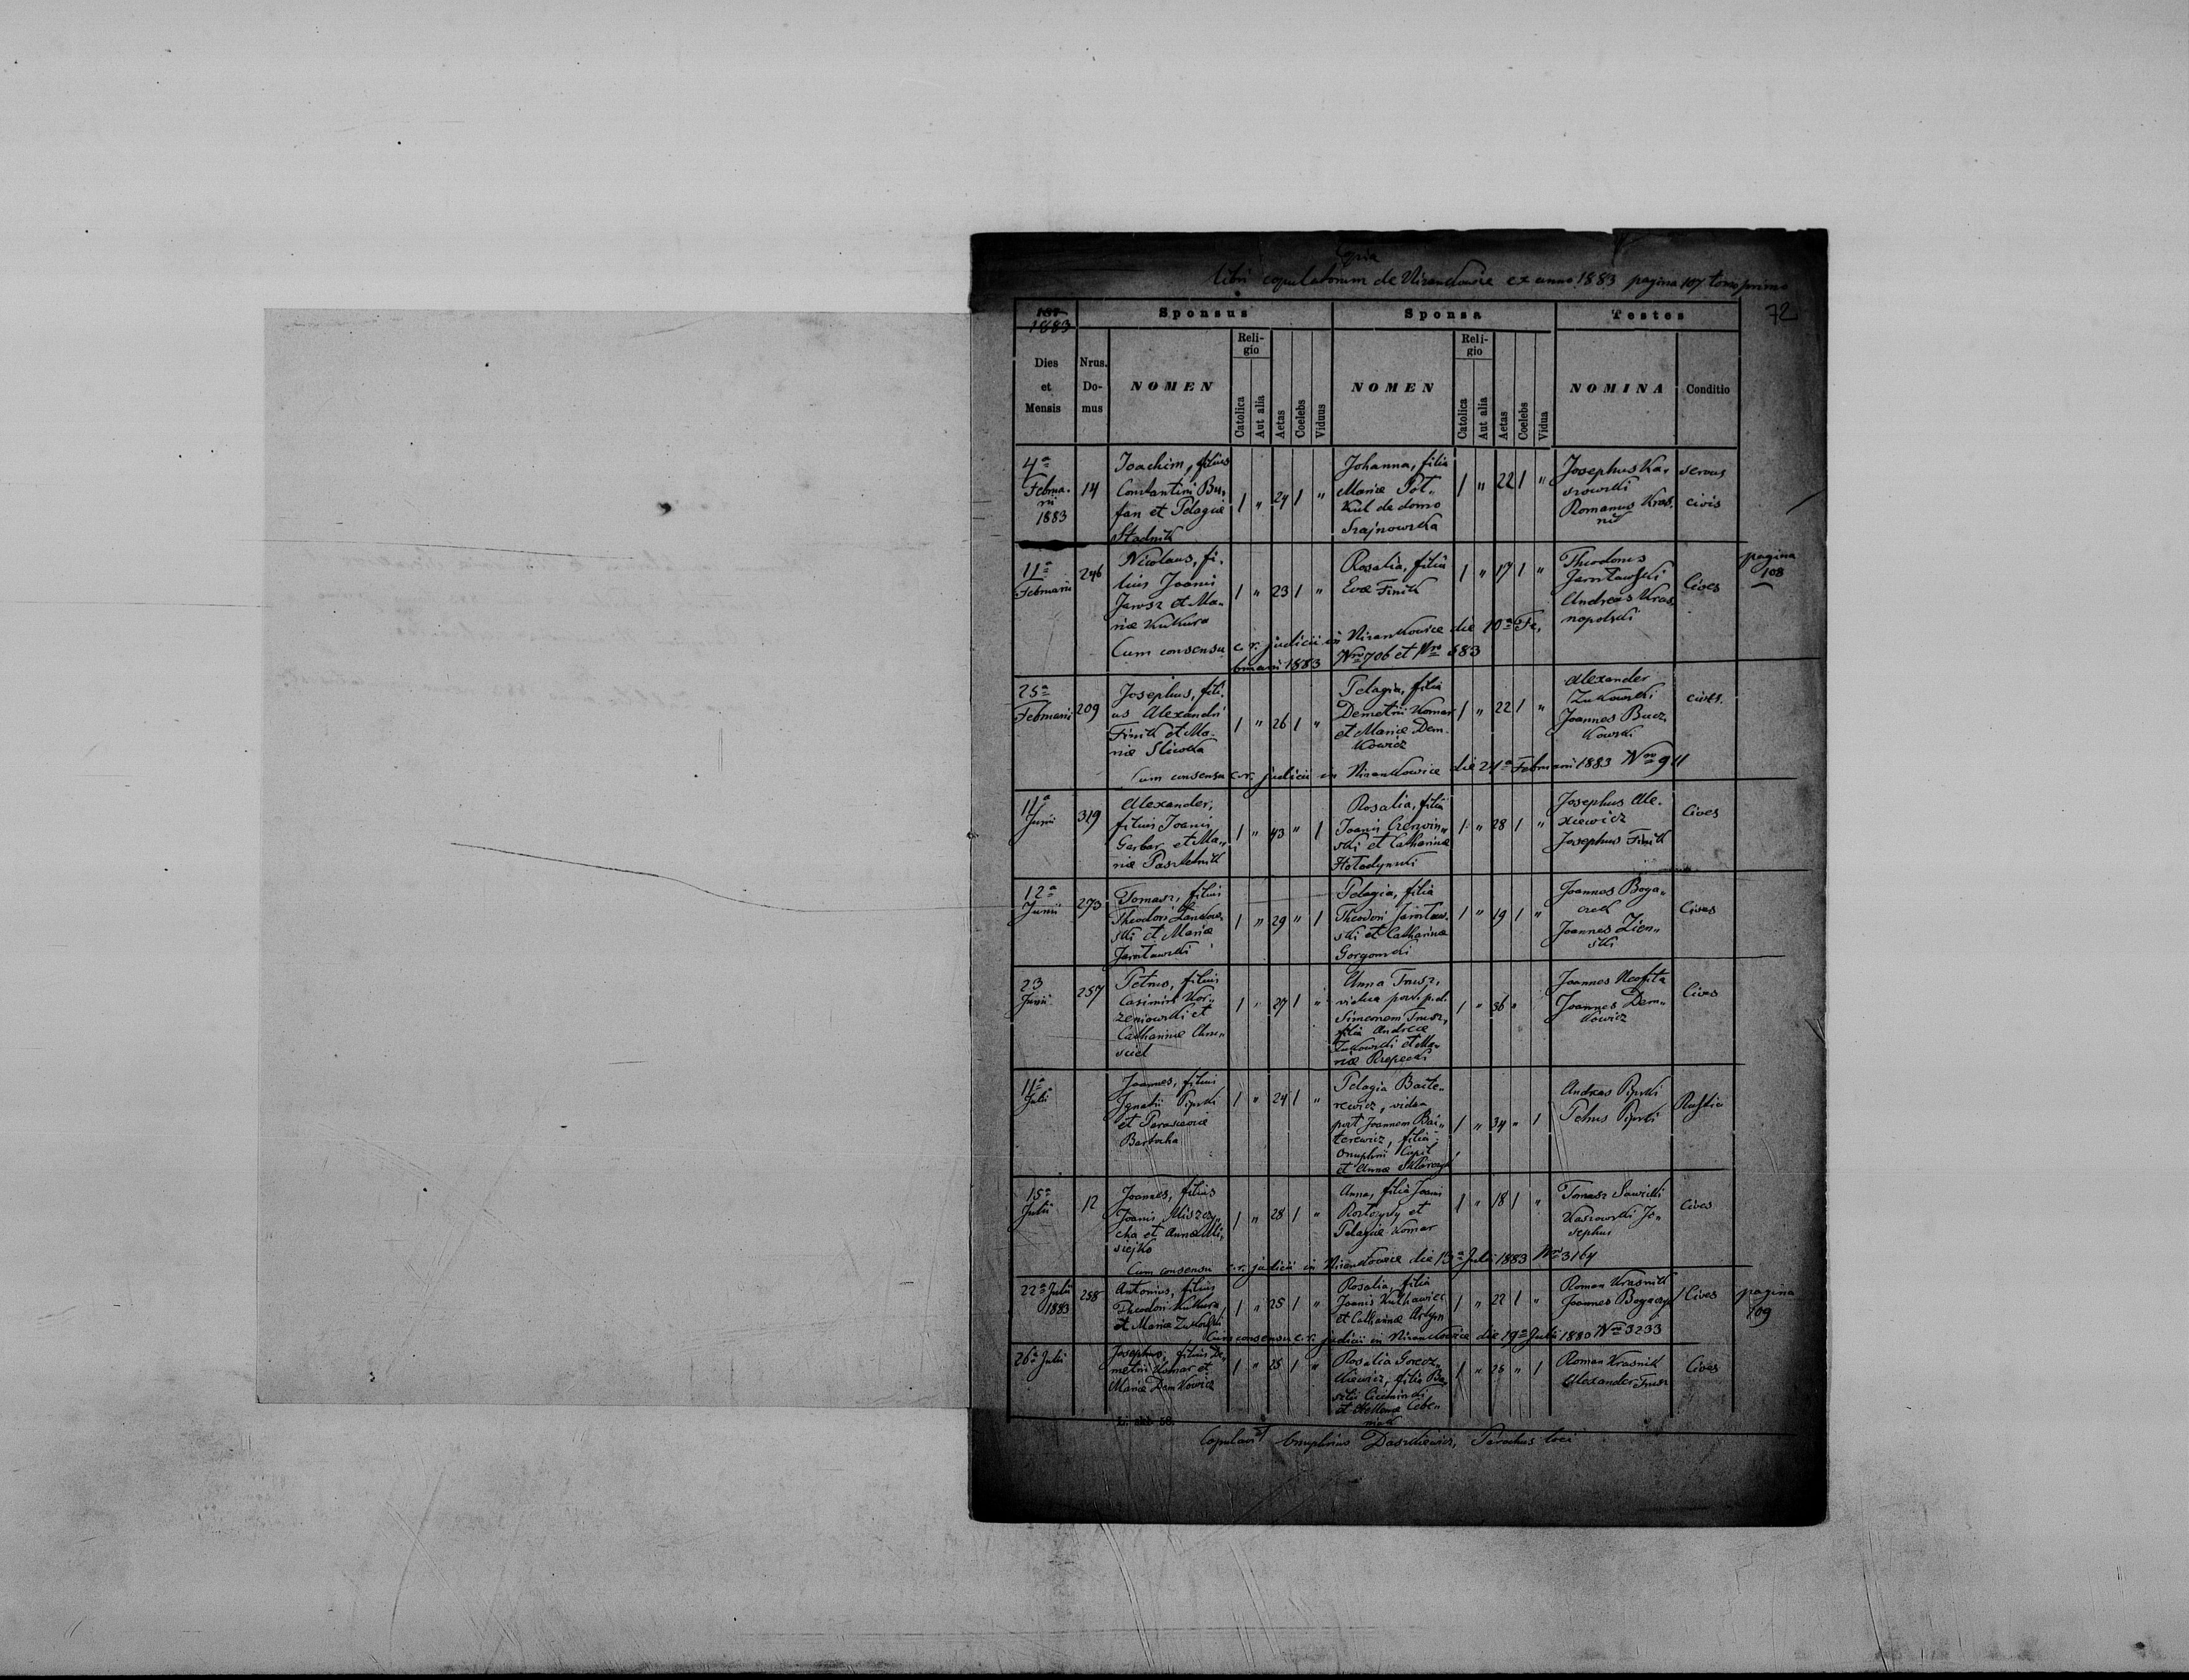 Copia
libri copulatorum de Nizankowice ex anno 1883 pagina 107 tomo primo
72
1883
Sponsus
Sponsa
Testes
Dies et Mensis
Nrus. Do- mus
NOMEN
Reli- gio
Catolica
Aut alia
Aetas
Coelebs
Viduus
NOMEN
Reli- gio
Catolica
Aut alia
Aetas
Coelebs
Vidua
NOMINA
Conditio
4a Februa- rii 1883
14
Joachim, filius
Constantini
et Pelagiae
Stadnik
1 " 24 1 "
Johanna, filia
Mariae
de domo
Szajnowska
1 " 22 1 "
Josephus Ka-
szowski
Romanus Kras-
nik
servus
civis
11a Februarii
246
Nicolaus, fi-
lius Joanis
Jarosz et Ma-
riae Kukura
1 " 23 1 "
Rosalia, filia
Evae Finik
1 " 17 1 "
Theodorus
Jarosławski
Andreas Kras-
nopolski
Cives
pagina
108
Cum consensu c. r. judicii in Nizankowice die 10a Fe-
bruarii 1883 Nro 706 et Nro 683
25a Februarii
209
Josephus, fili-
us Alexandri
Finik et Ma-
riae Sliwka
1 " 26 1 "
Pelagia, filia
Demetrii Komar
et Mariae Dem-
kowicz
1 " 22 1 "
Alexander
Zukowski
Joannes Bucz-
kowski
cives.
Cum consensu c. r. judicii in Nizankowice die 24a Februarii 1883 Nro 911
11a Junii
319
Alexander,
filius Joanis
Garbar et Ma-
riae Paszketnik
1 " 43 " 1
Rosalia, filia
Joanis Czerwin-
ski et Catharinae
Hołodynski
1 " 28 1 "
Josephus Ale-
xiewicz
Josephus Finik
Cives
12a Junii
273
Tomasz, filius
Theodori
et Mariae
Jarosławski
1 " 29 " 1
Pelagia, filia
Theodori Jarosław-
ski et Catharinae
Gorgowski
1 " 19 1 "
Joannes Boga-
czek
Joannes Zien-
ski
Cives
23 Junii
257
Petrus, filius
Casimiri Kor-
zeniowski et
Catharinae
1 " 27 1 "
Anna Trusz,
vidua post p.d.
Simeonem Trusz,
filia Andreae
Zukowski et Ma-
riae Rzepecki
1 " 36 "
Joannes Neofita
Joannes Dem-
kowicz
Cives
11a Julii
Joannes, filius
Ignatii Pipski
et Parasceviae
Barbocha
1 " 24 1 "
Pelagia Baite-
rewicz, vidua
post Joannem Bai-
terewicz, filia
Onuphrii Kopil
et Annae
1 " 34 " 1
Andreas Pipski
Petrus Pipski
Rustici
15a Julii
12
Joannes, filius
Joanis
et Annae Mi-
siejko
1 " 28 1 "
Anna, filia Joanis
et
Pelagiae Komar
1 " 18 1 "
Tomasz Sawicki
Kaszowski Jo-
sephus
Cives
Cum consensu c. r. judicii in Nizankowice die 13a Julii 1883 Nro 3164
22a Julii 1883
258
Antonius, filius
Theodori Kukura
et Mariae Zukowski
1 " 25 1 "
Rosalia, filia
Joanis Kulhawiec
et Catharinae
1 " 22 1 "
Roman Krasnik
Joannes Bogaczyk
Cives
pagina
109
Cum consensu c. r. judicii in Nizankowice die 19a Julii 1880 Nro 3233
26a Julii
Josephus, filius De-
metrii Komar et
Mariae Demkowicz
1 " 25 1 "
Rosalia
filia Ba-
silii
et
1 " 25 " 1
Roman Krasnik
Alexander Trusz
Cives
Copulavit Onuphrius Daszkiewicz, Parochus loci